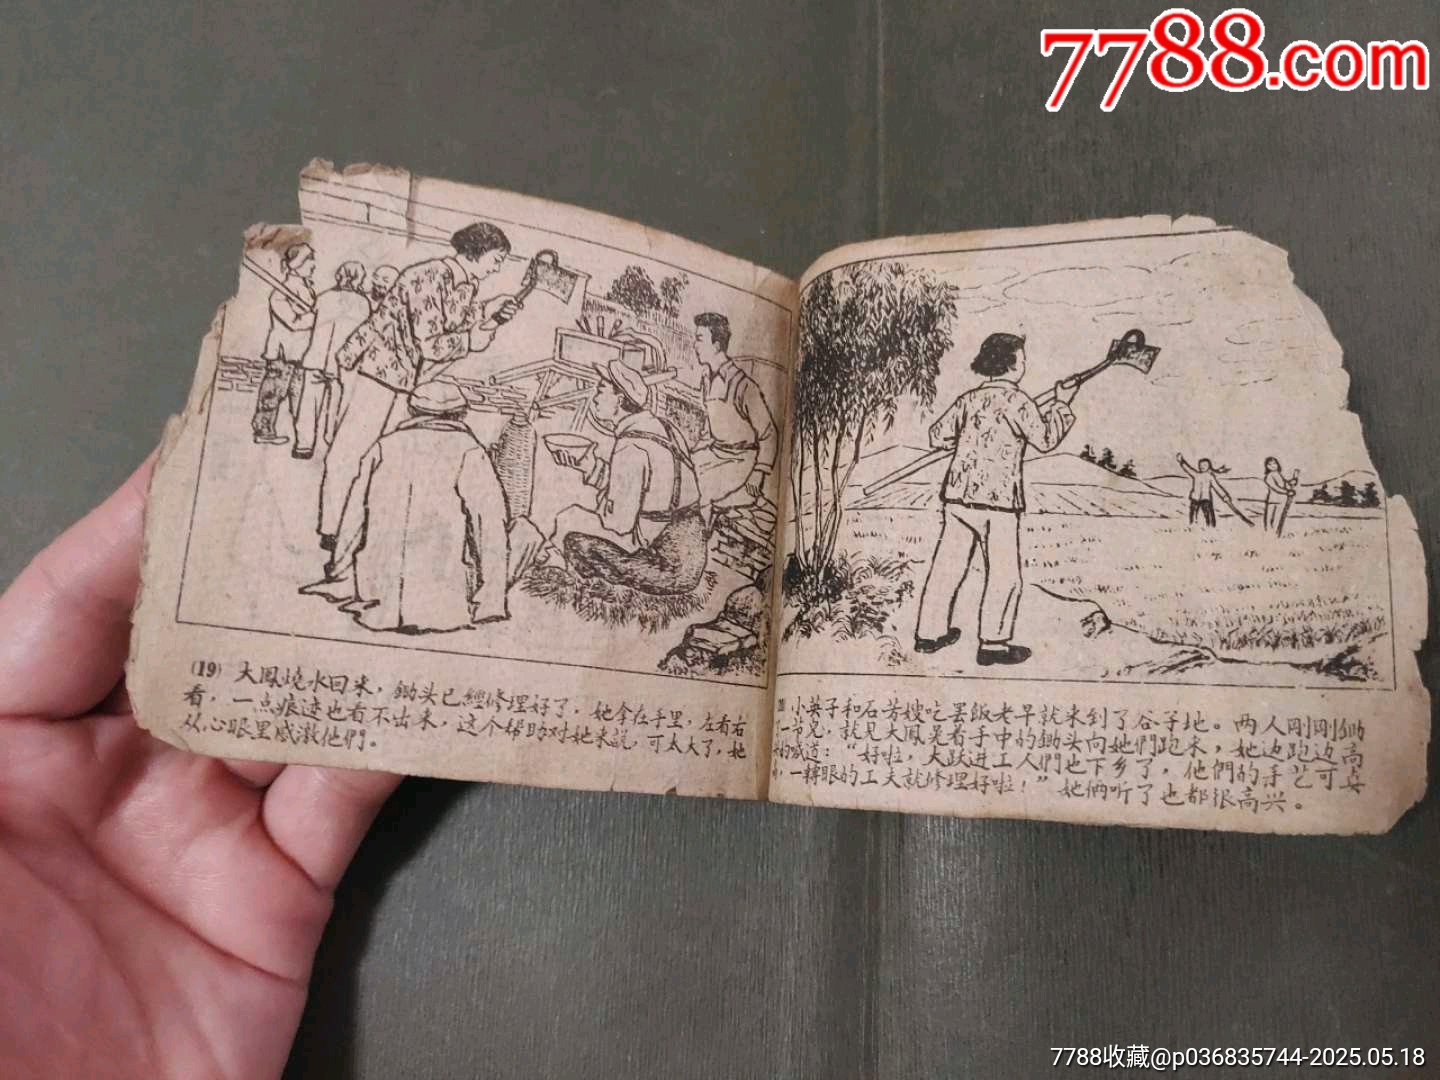 7788.com
(19) 大鳳燒水回来，鋤头已經修理好了，她拿在手里，左看右
看，一点痕迹也看不出来，这个帮助对她来說，可太大了，她
从心眼里感激他們。
小英子和石芳嫂吃罢飯老早就来到了谷子地。两人剛剛鋤
了一节儿，就见大鳳晃着手中的鋤头向她們跑来，她边跑边高
的喊道：“好啦，大跃进工人們也下乡了，他們的手艺可真
，一轉眼的工夫就修理好啦！”她俩听了也都很高兴。
7788收藏@p036835744-2025.05.18